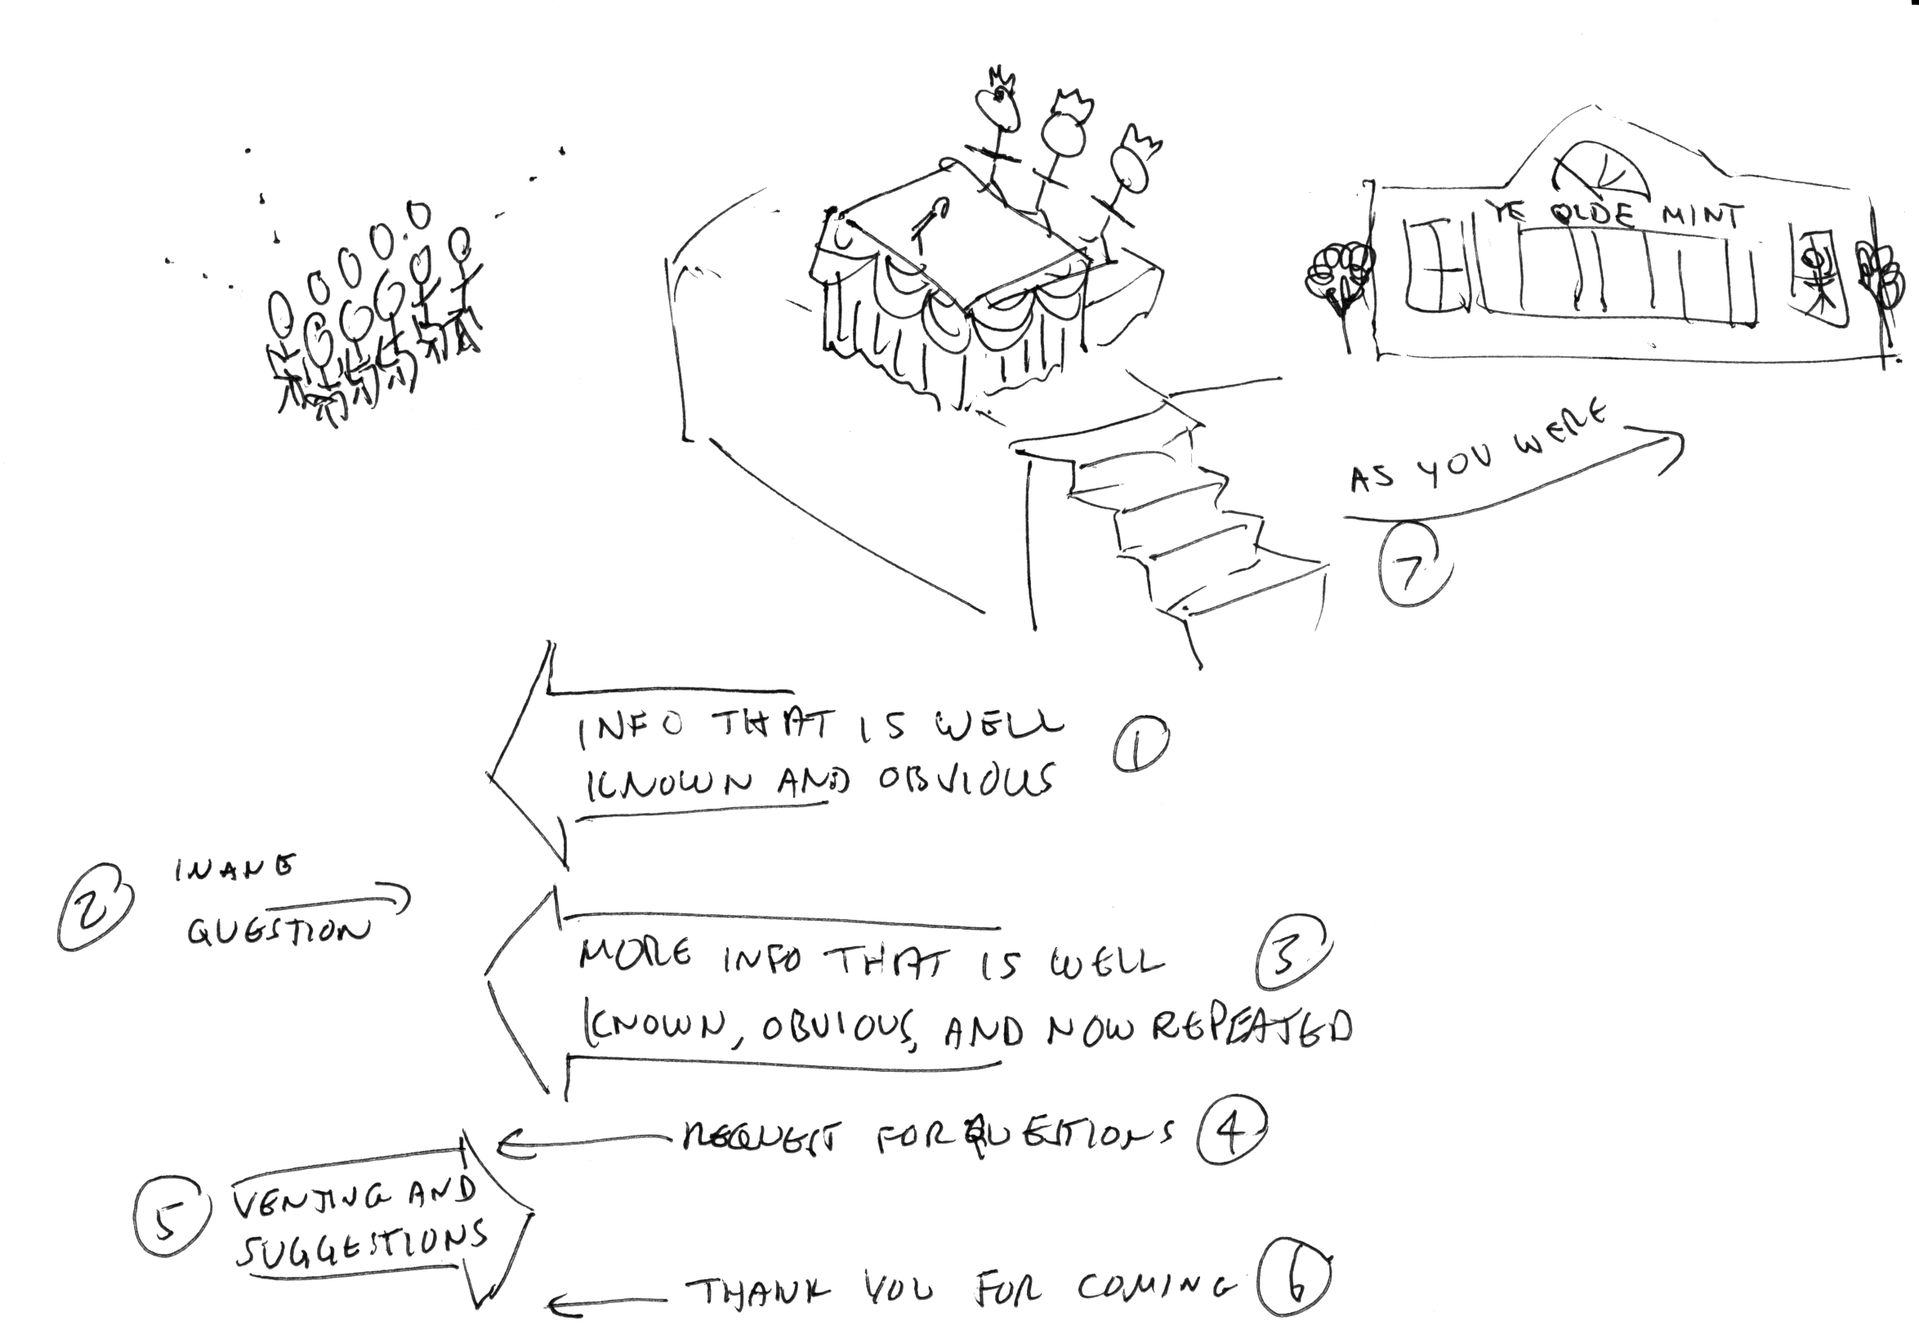 YE OLDE MINT
AS YOU WERE
7
INFO THAT IS WELL
KNOWN AND OBVIOUS
1
2
INANE
QUESTION
MORE INFO THAT IS WELL
KNOWN, OBVIOUS, AND NOW REPEATED
3
REQUEST FOR QUESTIONS
4
5
VENTING AND
SUGGESTIONS
THANK YOU FOR COMING
6